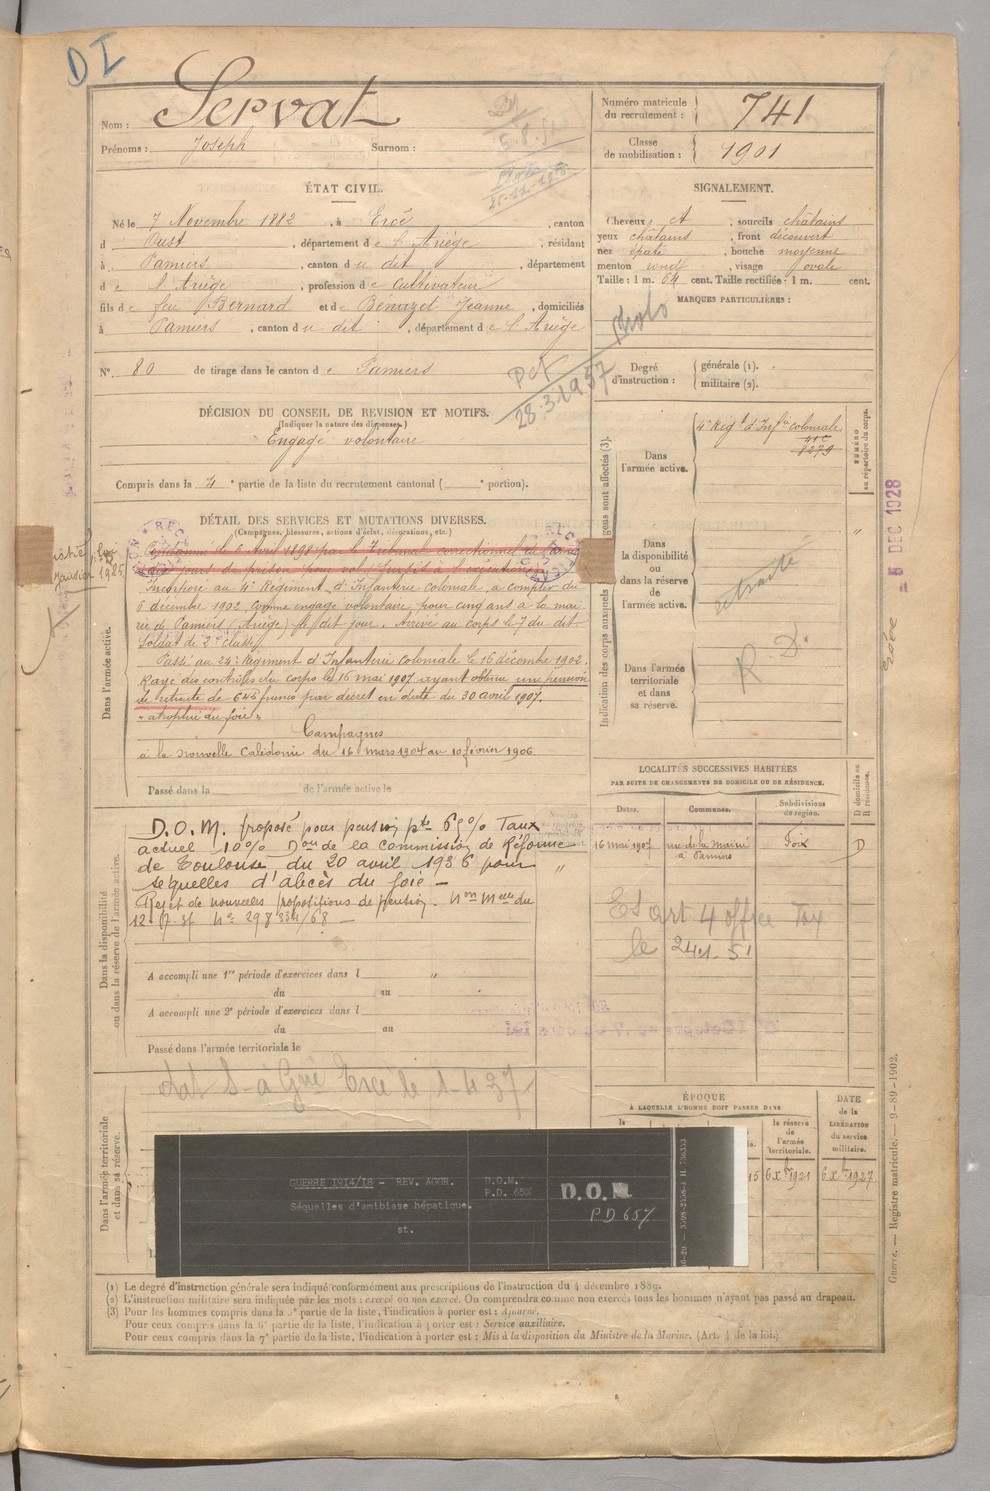 D I
Nom : Servat
Prénoms : Joseph Surnom :
Numéro matricule du recrutement : 741
Classe de mobilisation : 1901
ÉTAT CIVIL.
Né le 7 Novembre 1882, à Ercé, canton
d Oust, département de l'Ariège, résidant
à Pamiers, canton du dit, département
de l'Ariège, profession de Cultivateur
fils de feu Bernard et de Bénazet Jeanne, domiciliés
à Pamiers, canton du dit, département de l'Ariège
N° 80 de tirage dans le canton de Pamiers
SIGNALEMENT.
Cheveux et, sourcils châtains
yeux châtains, front découvert
nez épaté, bouche moyenne
menton rond, visage ovale
Taille : 1 m. 64 cent. Taille rectifiée : 1 m. cent.
MARQUES PARTICULIÈRES :
Photo
28.3.1957
Degré d'instruction : générale (1).
militaire (2).
DÉCISION DU CONSEIL DE REVISION ET MOTIFS.
(Indiquer la nature des dispenses.)
Engagé volontaire
Compris dans la 4e partie de la liste du recrutement cantonal ( e portion).
DÉTAIL DES SERVICES ET MUTATIONS DIVERSES.
(Campagnes, blessures, actions d'éclat, décorations, etc.)
Condamné le 6 Avril 1898 par le Tribunal correctionnel de
jours de prison pour vol. Sursis à l'exécution
Incorporé au 4e Régiment d'Infanterie coloniale, à compter du
6 décembre 1902, comme engagé volontaire pour cinq ans à la mai
rie de Pamiers (Ariège) le dit jour. Arrivé au corps le 7 du dit.
Soldat de 2e classe.
Passé au 24e Régiment d'Infanterie coloniale le 16 décembre 1902.
Rayé des contrôles du corps le 16 mai 1907 ayant obtenu une pension
de retraite de 645 francs par décret en date du 30 avril 1907.
"atrophie du foie"
Campagnes
à la Nouvelle Calédonie du 16 mars 1904 au 10 février 1906
Passé dans la de l'armée active le
Dans l'armée active.
Indication des corps auxquels les gens sont affectés (3).
Dans l'armée active. 4e Régt d'Infie coloniale
8279
NUMÉRO au répertoire du corps.
Dans la disponibilité ou dans la réserve de l'armée active. retraité
Dans l'armée territoriale et dans sa réserve. R. D.
5 DEC 1928
LOCALITÉS SUCCESSIVES HABITÉES
PAR SUITE DE CHANGEMENTS DE DOMICILE OU DE RÉSIDENCE.
Dates. Communes. Subdivisions de région. D domicile ou R résidence.
16 mai 1907 rue de la mairie à Pamiers Foix D
Dans la disponibilité ou dans la réserve de l'armée active.
D.O.M. proposé pour pension pte 65% Taux
actuel 10% Don de la commission de Réforme
de Toulouse du 20 avril 1936 pour
séquelles d'abcès du foie –
Rejet de nouvelles propositions de pension.
A accompli une 1re période d'exercices dans l
du au
A accompli une 2e période d'exercices dans l
du au
Passé dans l'armée territoriale le
Ercé le 1-4 37
Dans l'armée territoriale et dans sa réserve.
ÉPOQUE
À LAQUELLE L'HOMME DOIT PASSER DANS
la réserve de l'armée territoriale.
DATE de la LIBÉRATION du service militaire.
6 Xbre 1921 6 Xbre 1927
GUERRE 1914/18 - REV. AGGR. D.O.M.
P.D. 65%
Séquelles d'amibiase hépatique.
st.
D.O.M
P D 65%
(1) Le degré d'instruction générale sera indiqué conformément aux prescriptions de l'instruction du 4 décembre 1889.
(2) L'instruction militaire sera indiquée par les mots : exercé ou non exercé. On comprendra comme non exercés tous les hommes n'ayant pas passé au drapeau.
(3) Pour les hommes compris dans la 5e partie de la liste, l'indication à porter est : Ajourné.
Pour ceux compris dans la 6e partie de la liste, l'indication à porter est : Service auxiliaire.
Pour ceux compris dans la 7e partie de la liste, l'indication à porter est : Mis à la disposition du Ministre de la Marine. (Art. 4 de la loi.)
Guerre. — Registre matricule. — 9-89-1902.